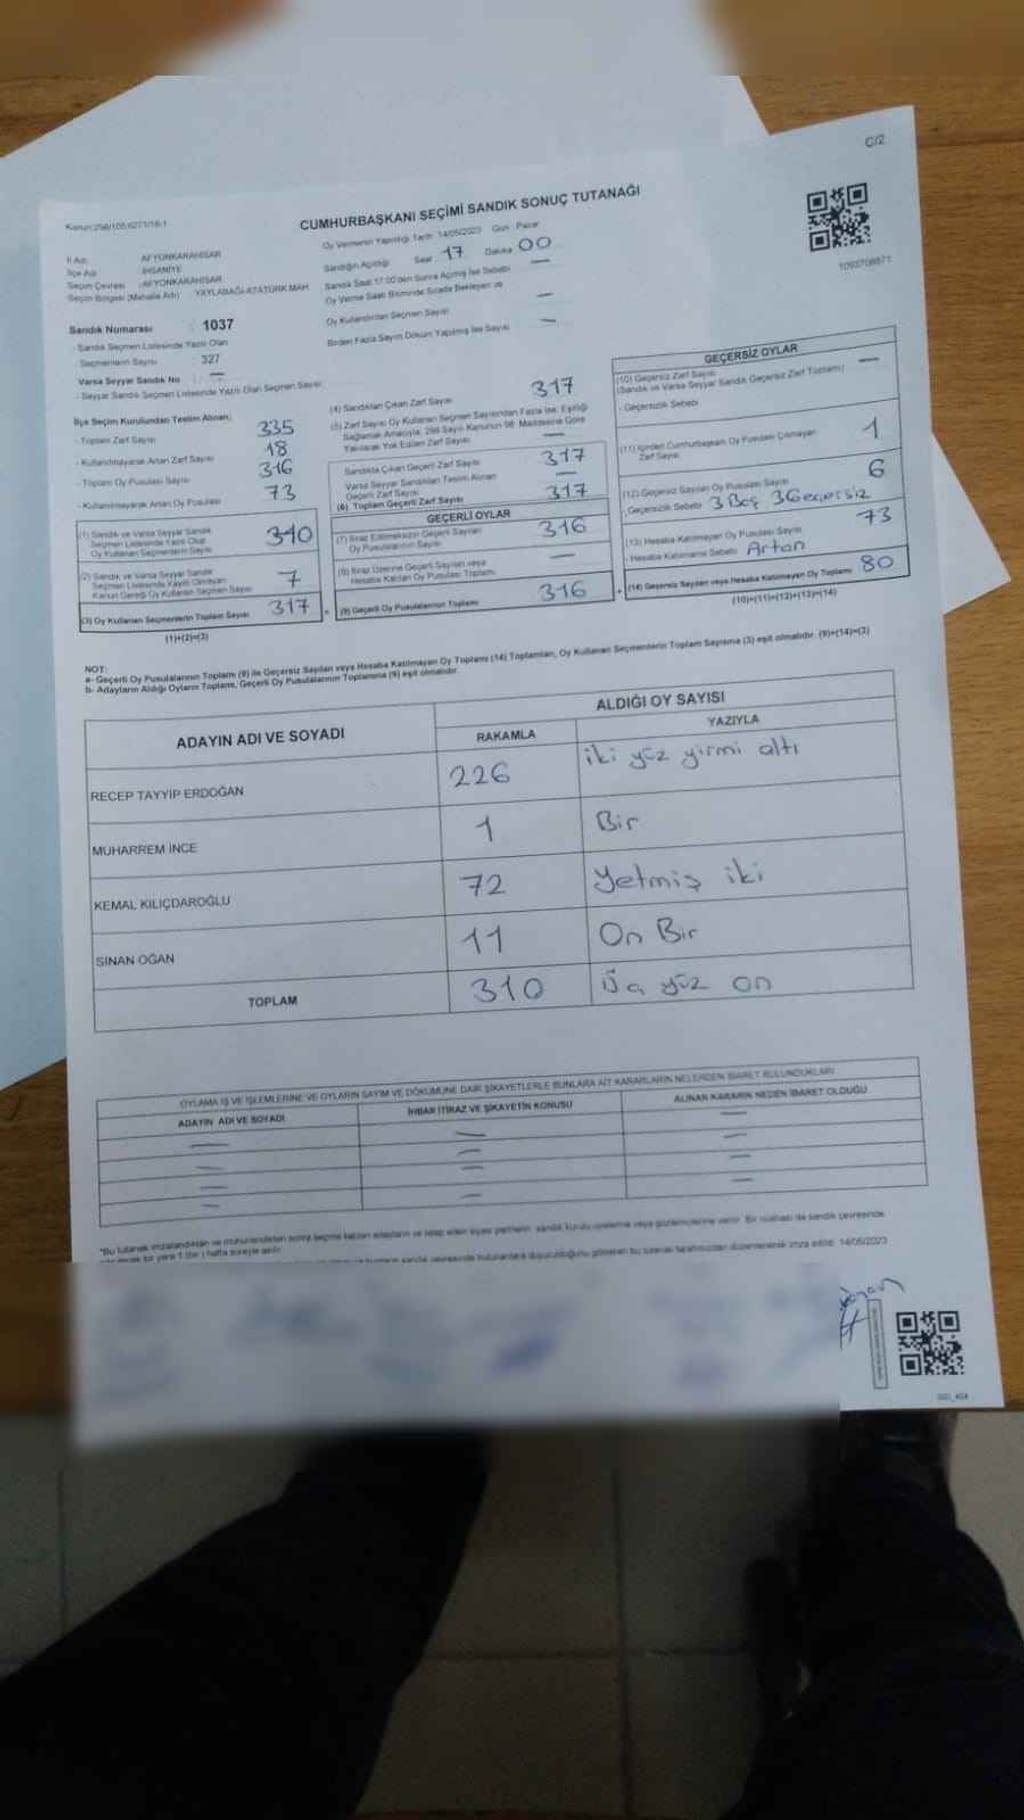 C/2
CUMHURBAŞKANI SEÇİMİ SANDIK SONUÇ TUTANAĞI
1093708871
İl Adı: AFYONKARAHİSAR
İlçe Adı İHSANİYE
Seçim Çevresi :AFYONKARAHİSAR
Seçim Bölgesi (Mahalle Adı) YAYLABAĞI-ATATÜRK MAH.
Oy Vermenin Yapıldığı Tarih: 14/05/2023 Gün: Pazar
Sandığın Açıldığı Saat: 17 Dakika 00
Sandık Saat 17:00'den Sonra Açılmış İse Sebebi —
Oy Verme Saati Bitiminde Sırada Bekleyen ve
Oy Kullandırılan Seçmen Sayısı —
Birden Fazla Sayım Döküm Yapılmış İse Sayısı —
Sandık Numarası : 1037
- Sandık Seçmen Listesinde Yazılı Olan
Seçmenlerin Sayısı 327
Varsa Seyyar Sandık No —
- Seyyar Sandık Seçmen Listesinde Yazılı Olan Seçmen Sayısı:
İlçe Seçim Kurulundan Teslim Alınan;
- Toplam Zarf Sayısı 335
- Kullanılmayarak Artan Zarf Sayısı 18
- Toplam Oy Pusulası Sayısı 316
- Kullanılmayarak Artan Oy Pusulası 73
(1) Sandık ve Varsa Seyyar Sandık
Seçmen Listesinde Yazılı Olup
Oy Kullanan Seçmenlerin Sayısı 310
(2) Sandık ve Varsa Seyyar Sandık
Seçmen Listesinde Kaydı Olmayan
Kanun Gereği Oy Kullanan Seçmen Sayısı 7
(3) Oy Kullanan Seçmenlerin Toplam Sayısı 317
(1)+(2)=(3)
(4) Sandıktan Çıkan Zarf Sayısı 317
(5) Zarf Sayısı Oy Kullanan Seçmen Sayısından Fazla İse, Eşitliği
Sağlamak Amacıyla, 298 Sayılı Kanunun 98. Maddesine Göre
Yakılarak Yok Edilen Zarf Sayısı —
Sandıkta Çıkan Geçerli Zarf Sayısı 317
Varsa Seyyar Sandıktan Teslim Alınan
Geçerli Zarf Sayısı —
(6) Toplam Geçerli Zarf Sayısı 317
GEÇERLİ OYLAR
(7) İtiraz Edilmeksizin Geçerli Sayılan
Oy Pusulalarının Sayısı 316
(8) İtiraz Üzerine Geçerli Sayılan veya
Hesaba Katılan Oy Pusulası Toplamı —
(9) Geçerli Oy Pusulalarının Toplamı 316
GEÇERSİZ OYLAR
(10) Geçersiz Zarf Sayısı —
(Sandık ve Varsa Seyyar Sandık Geçersiz Zarf Toplamı)
- Geçersizlik Sebebi
(11) İçinden Cumhurbaşkanı Oy Pusulası Çıkmayan
Zarf Sayısı 1
(12) Geçersiz Sayılan Oy Pusulası Sayısı 6
- Geçersizlik Sebebi 3 Boş 3 Geçersiz
(13) Hesaba Katılmayan Oy Pusulası Sayısı 73
- Hesaba Katılmama Sebebi Artan
(14) Geçersiz Sayılan veya Hesaba Katılmayan Oy Toplamı 80
(10)+(11)+(12)+(13)=(14)
NOT:
a- Geçerli Oy Pusulalarının Toplamı (9) ile Geçersiz Sayılan veya Hesaba Katılmayan Oy Toplamı (14) Toplamları, Oy Kullanan Seçmenlerin Toplam Sayısına (3) eşit olmalıdır. (9)+(14)=(3)
b- Adayların Aldığı Oyların Toplamı, Geçerli Oy Pusulalarının Toplamına (9) eşit olmalıdır.
ADAYIN ADI VE SOYADI
ALDIĞI OY SAYISI
RAKAMLA YAZIYLA
RECEP TAYYİP ERDOĞAN 226 iki yüz yirmi altı
MUHARREM İNCE 1 Bir
KEMAL KILIÇDAROĞLU 72 Yetmiş iki
SİNAN OĞAN 11 On Bir
TOPLAM 310 Üç yüz on
OYLAMA İŞ VE İŞLEMLERİNE VE OYLARIN SAYIM VE DÖKÜMÜNE DAİR ŞİKAYETLERLE BUNLARA AİT KARARLARIN NELERDEN İBARET BULUNDUKLARI
ADAYIN ADI VE SOYADI İHBAR İTİRAZ VE ŞİKAYETİN KONUSU ALINAN KARARIN NEDEN İBARET OLDUĞU